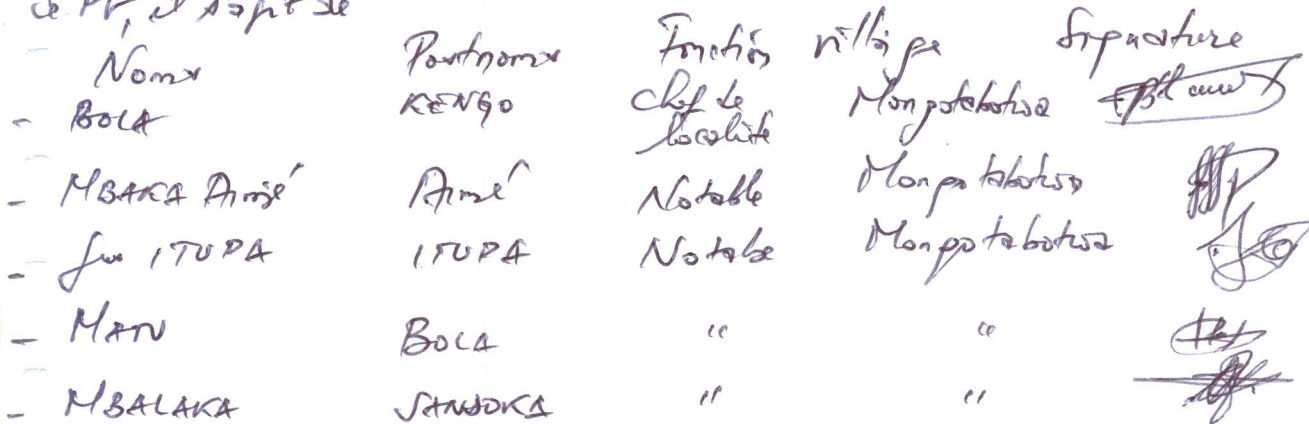 ce PV, il s'agit de
Noms Postnoms Fonction village Signature
- BOLA KENGO Chef de localité Mongotabotwa
- MBAKA Aimé Aimé Notable Mongotabotwa
- ITUPA ITUPA Notable Mongotabotwa
- MATU BOLA " "
- MBALAKA " "